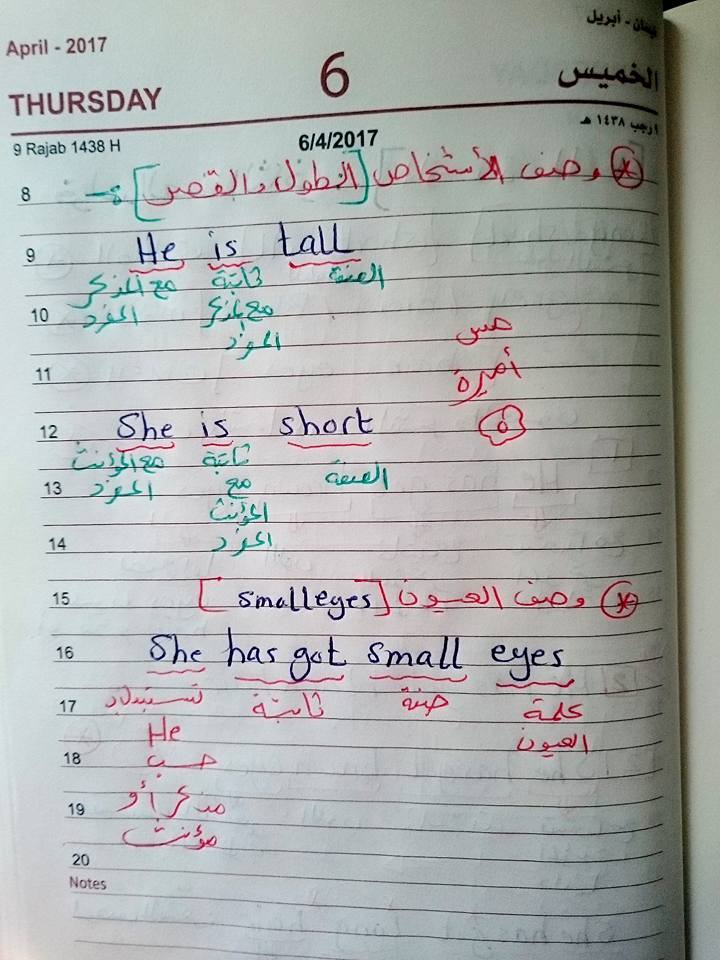 April - 2017
نيسان - أبريل
6
THURSDAY
الخميس
9 Rajab 1438 H
6/4/2017
٩ رجب ١٤٣٨ هـ
8
* وصف الأشخاص [الطول والقصر] :-
9
He is tall
مع المذكر ثابتة الصفة
10
المفرد مع المذكر
المفرد
11
مس
أميرة
12
She is short
٥
مع المؤنث ثابتة
13
المفرد مع الصفة
المؤنث
14
المفرد
15
* وصف العيون [small eyes]
16
She has got small eyes
17
تستبدل بـ ثابتة صفة كلمة
He العيون
18
حسب
19
مذكر أو
مؤنث
20
Notes